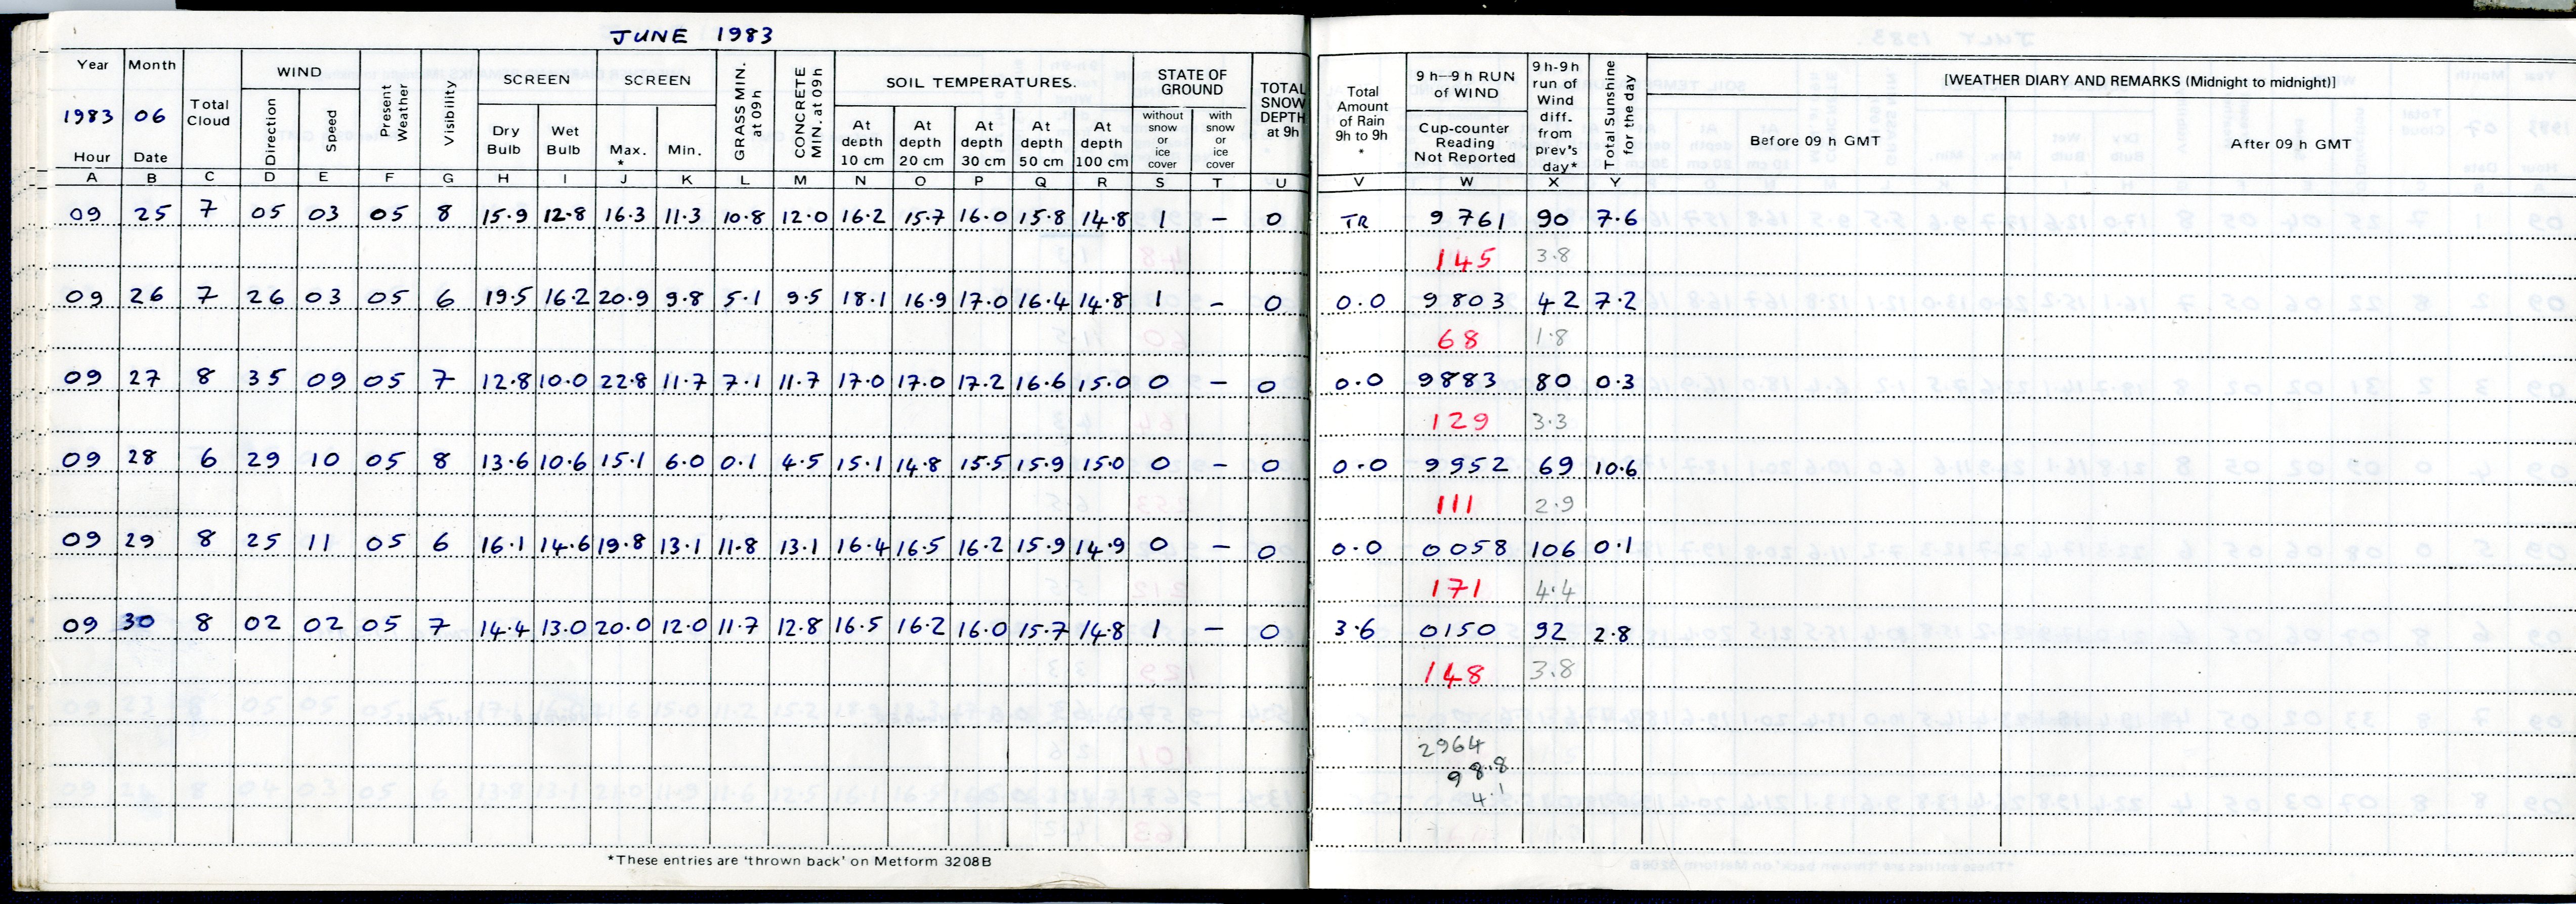 JUNE 1983
Year Month WIND SCREEN SCREEN SOIL TEMPERATURES. STATE OF GROUND
1983 06 Total Cloud Direction Speed Present Weather Visibility Dry Bulb Wet Bulb Max. * Min. GRASS MIN. at 09h CONCRETE MIN. at 09h At depth 10 cm At depth 20 cm At depth 30 cm At depth 50 cm At depth 100 cm without snow or ice cover with snow or ice cover TOTAL SNOW DEPTH at 9h Total Amount of Rain 9h to 9h * 9h–9h RUN of WIND Cup-counter Reading Not Reported 9h-9h run of Wind diff. from prev's day* Total Sunshine for the day [WEATHER DIARY AND REMARKS (Midnight to midnight)]
Hour Date Before 09 h GMT After 09 h GMT
A B C D E F G H I J K L M N O P Q R S T U V W X Y
09 25 7 05 03 05 8 15.9 12.8 16.3 11.3 10.8 12.0 16.2 15.7 16.0 15.8 14.8 1 – 0 TR 9761 90 7.6
145 3.8
09 26 7 26 03 05 6 19.5 16.2 20.9 9.8 5.1 9.5 18.1 16.9 17.0 16.4 14.8 1 – 0 0.0 9803 42 7.2
68 1.8
09 27 8 35 09 05 7 12.8 10.0 22.8 11.7 7.1 11.7 17.0 17.0 17.2 16.6 15.0 0 – 0 0.0 9883 80 0.3
129 3.3
09 28 6 29 10 05 8 13.6 10.6 15.1 6.0 0.1 4.5 15.1 14.8 15.5 15.9 15.0 0 – 0 0.0 9952 69 10.6
111 2.9
09 29 8 25 11 05 6 16.1 14.6 19.8 13.1 11.8 13.1 16.4 16.5 16.2 15.9 14.9 0 – 0 0.0 0058 106 0.1
171 4.4
09 30 8 02 02 05 7 14.4 13.0 20.0 12.0 11.7 12.8 16.5 16.2 16.0 15.7 14.8 1 – 0 3.6 0150 92 2.8
148 3.8
2964
98.8
4.1
*These entries are 'thrown back' on Metform 3208B